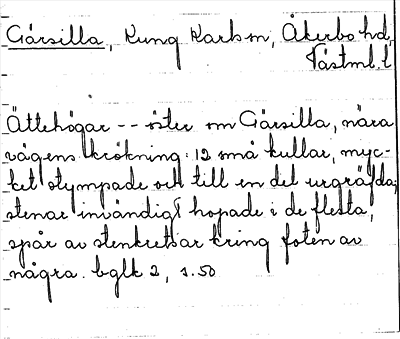 Gärsilla, Kung Karls sn, Åkerbo hd,
Västml. l.
Ättehögar -- öster om Gärsilla, nära
vägens krökning: 12 små kullar, myc-
ket stympade och till en del urgräfda;
stenar invändigt hopade i de flesta,
spår av stenkretsar kring foten av
några. bglk 2, s. 50